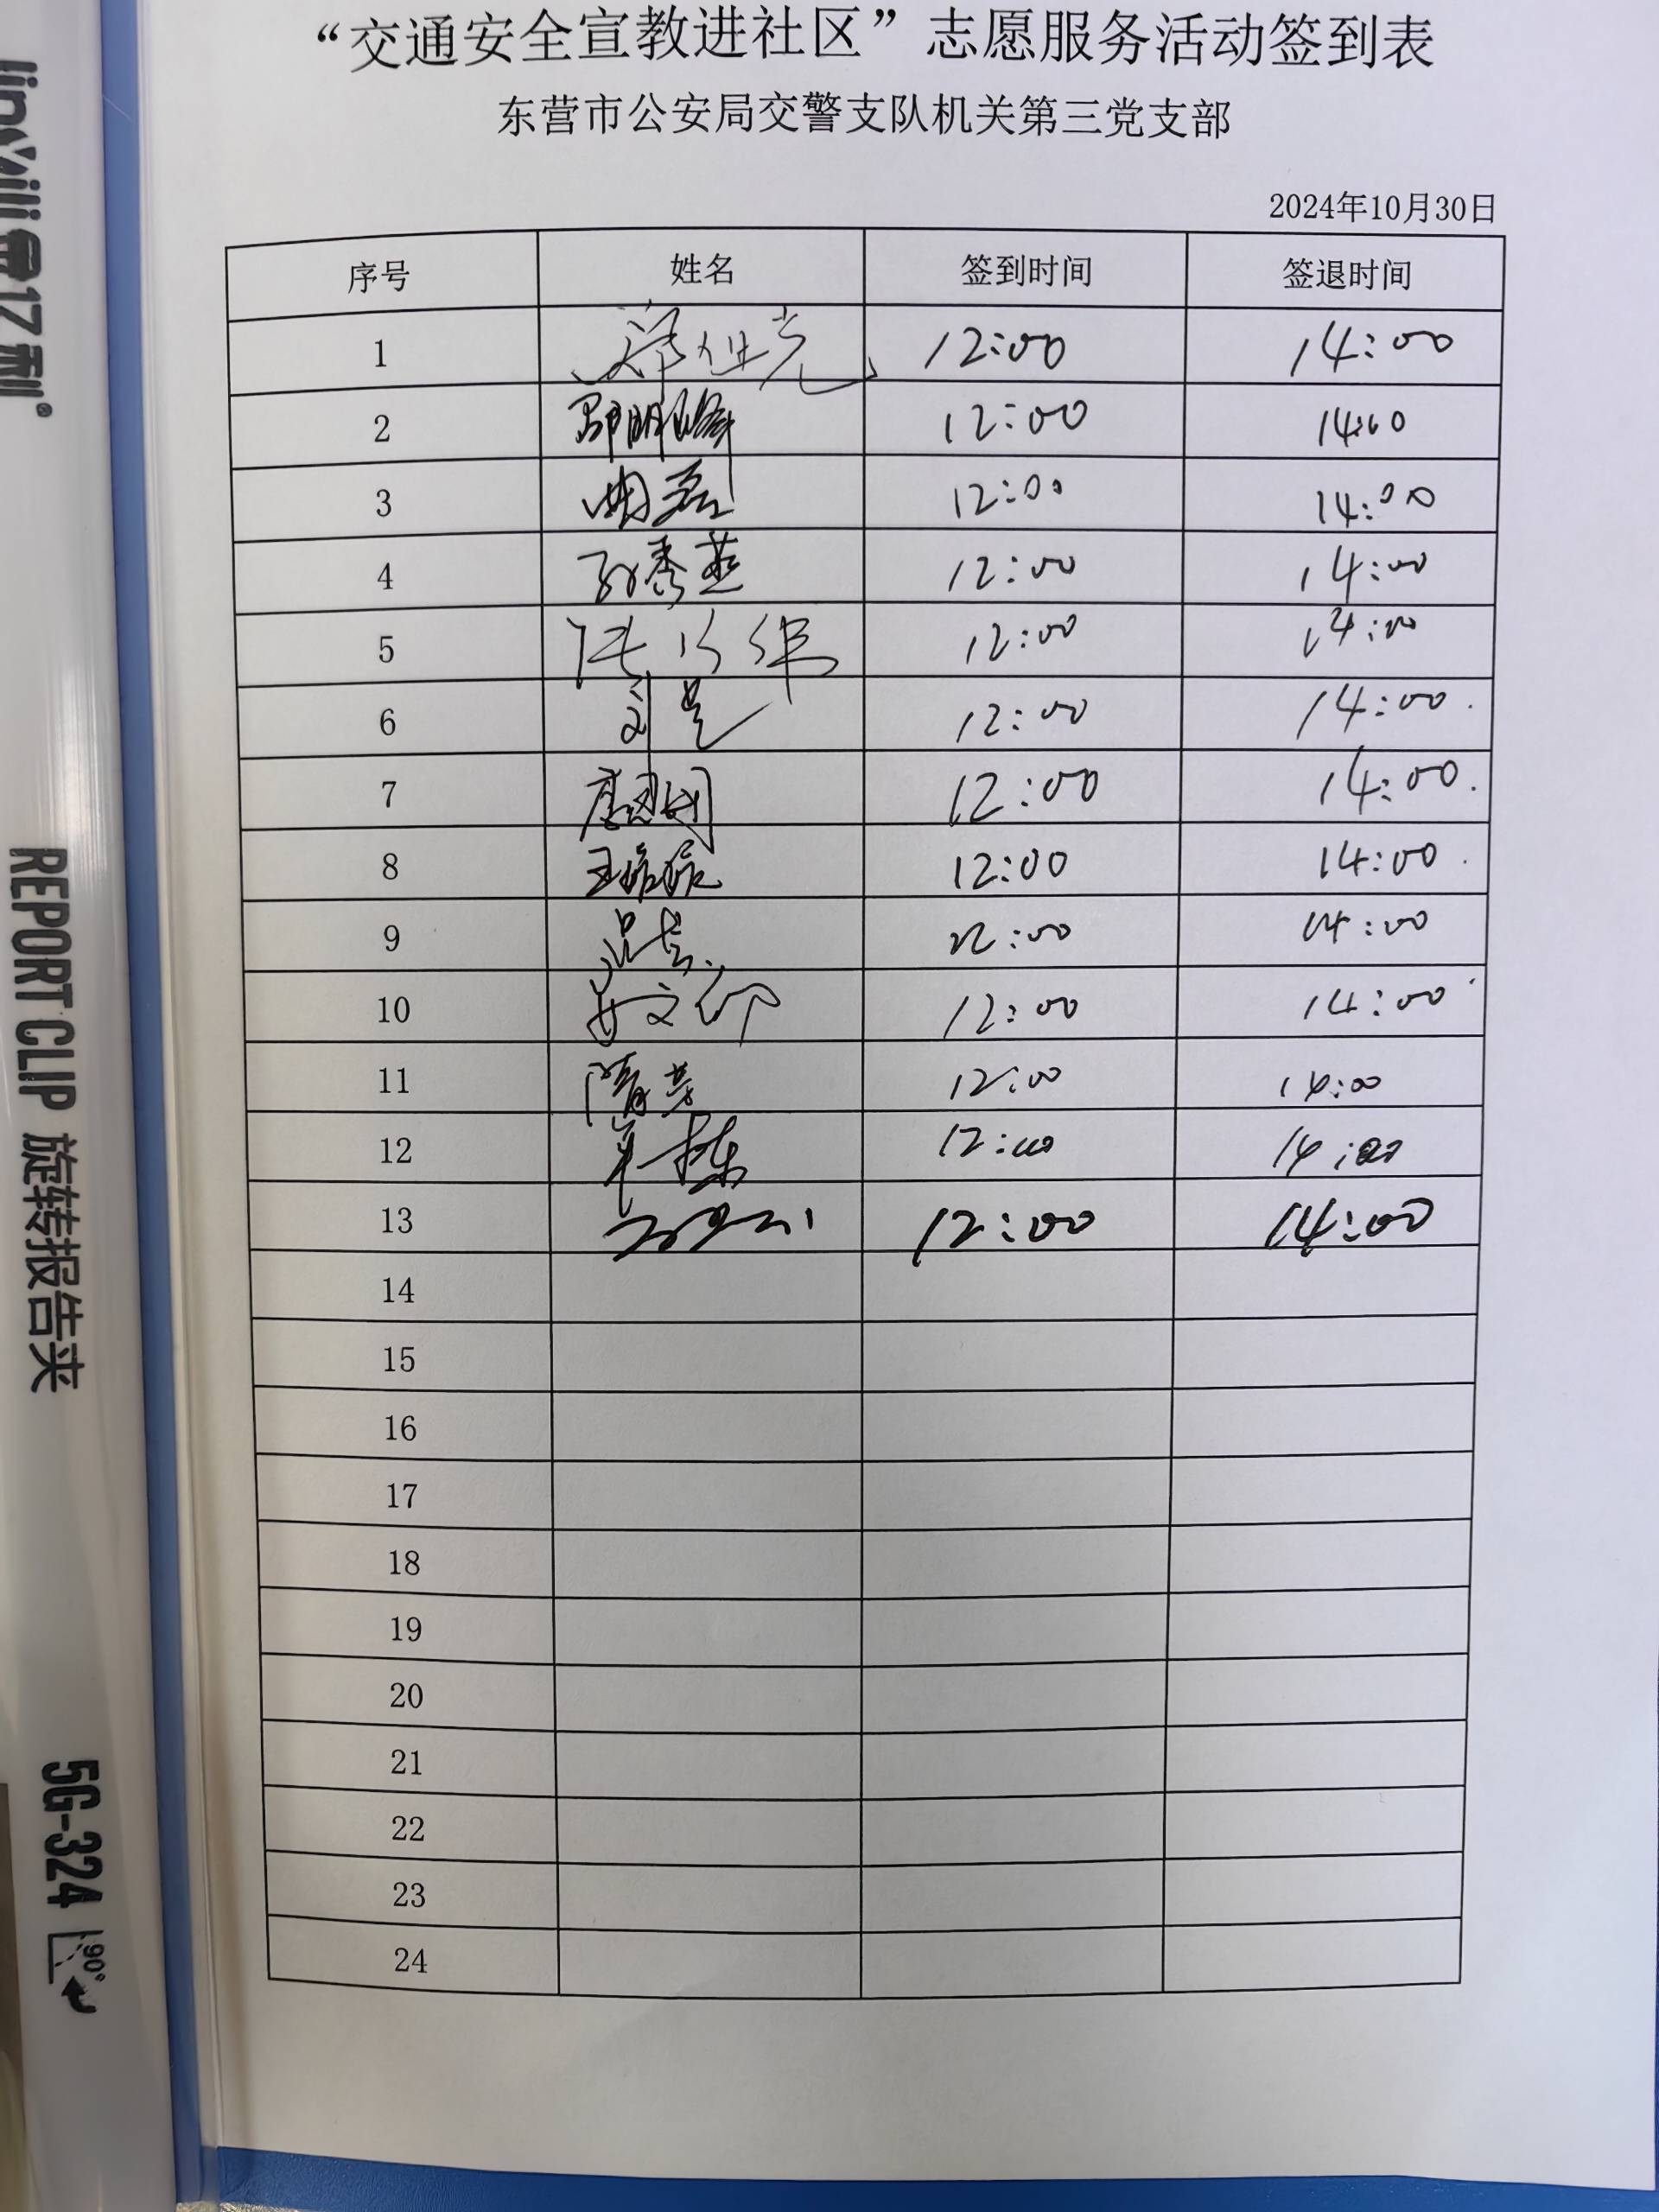 “交通安全宣教进社区”志愿服务活动签到表
东营市公安局交警支队机关第三党支部
2024年10月30日
序号 姓名 签到时间 签退时间
1 12:00 14:00
2 12:00 14:00
3 曲磊 12:00 14:00
4 孙秀燕 12:00 14:00
5 12:00 14:00
6 12:00 14:00.
7 12:00 14:00.
8 12:00 14:00.
9 12:00 14:00
10 12:00 14:00
11 隋芸 12:00 14:00
12 单栋 12:00 14:00
13 12:00 14:00
14
15
16
17
18
19
20
21
22
23
24
REPORT CLIP 旋转报告夹
5G-324 90°